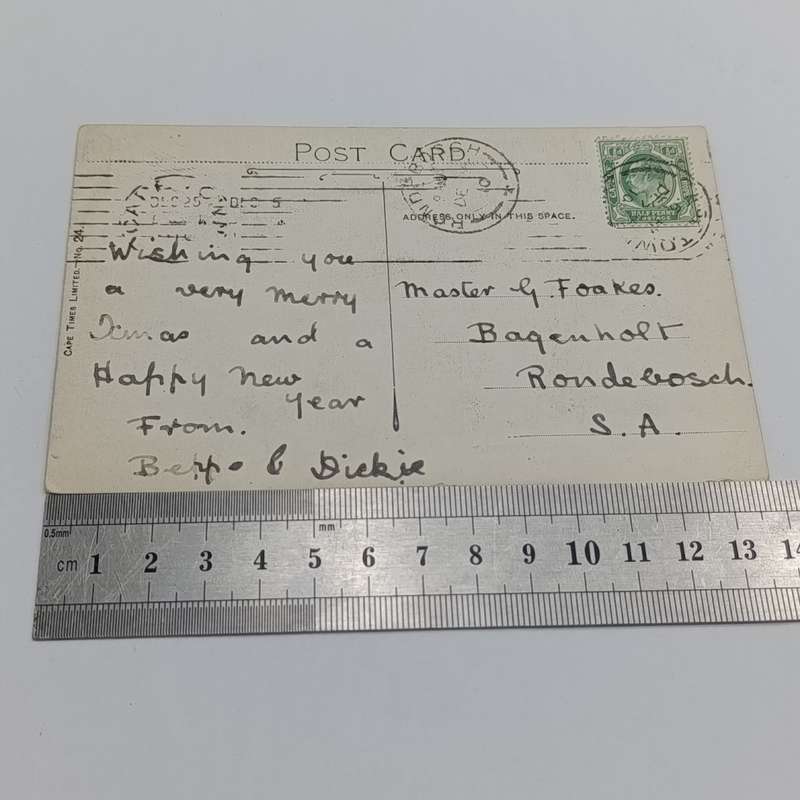 POST CARD
ADDRESS ONLY IN THIS SPACE.
HALF PENNY
POSTAGE
CAPE TIMES LIMITED.—No. 24.
Wishing you
a very merry
Xmas and a
Happy New
Year
From.
Beppo & Dickie
Master G. Foakes.
Bagenholt
Rondebosch.
S. A.
0.5mm
mm
cm 1 2 3 4 5 6 7 8 9 10 11 12 13 14